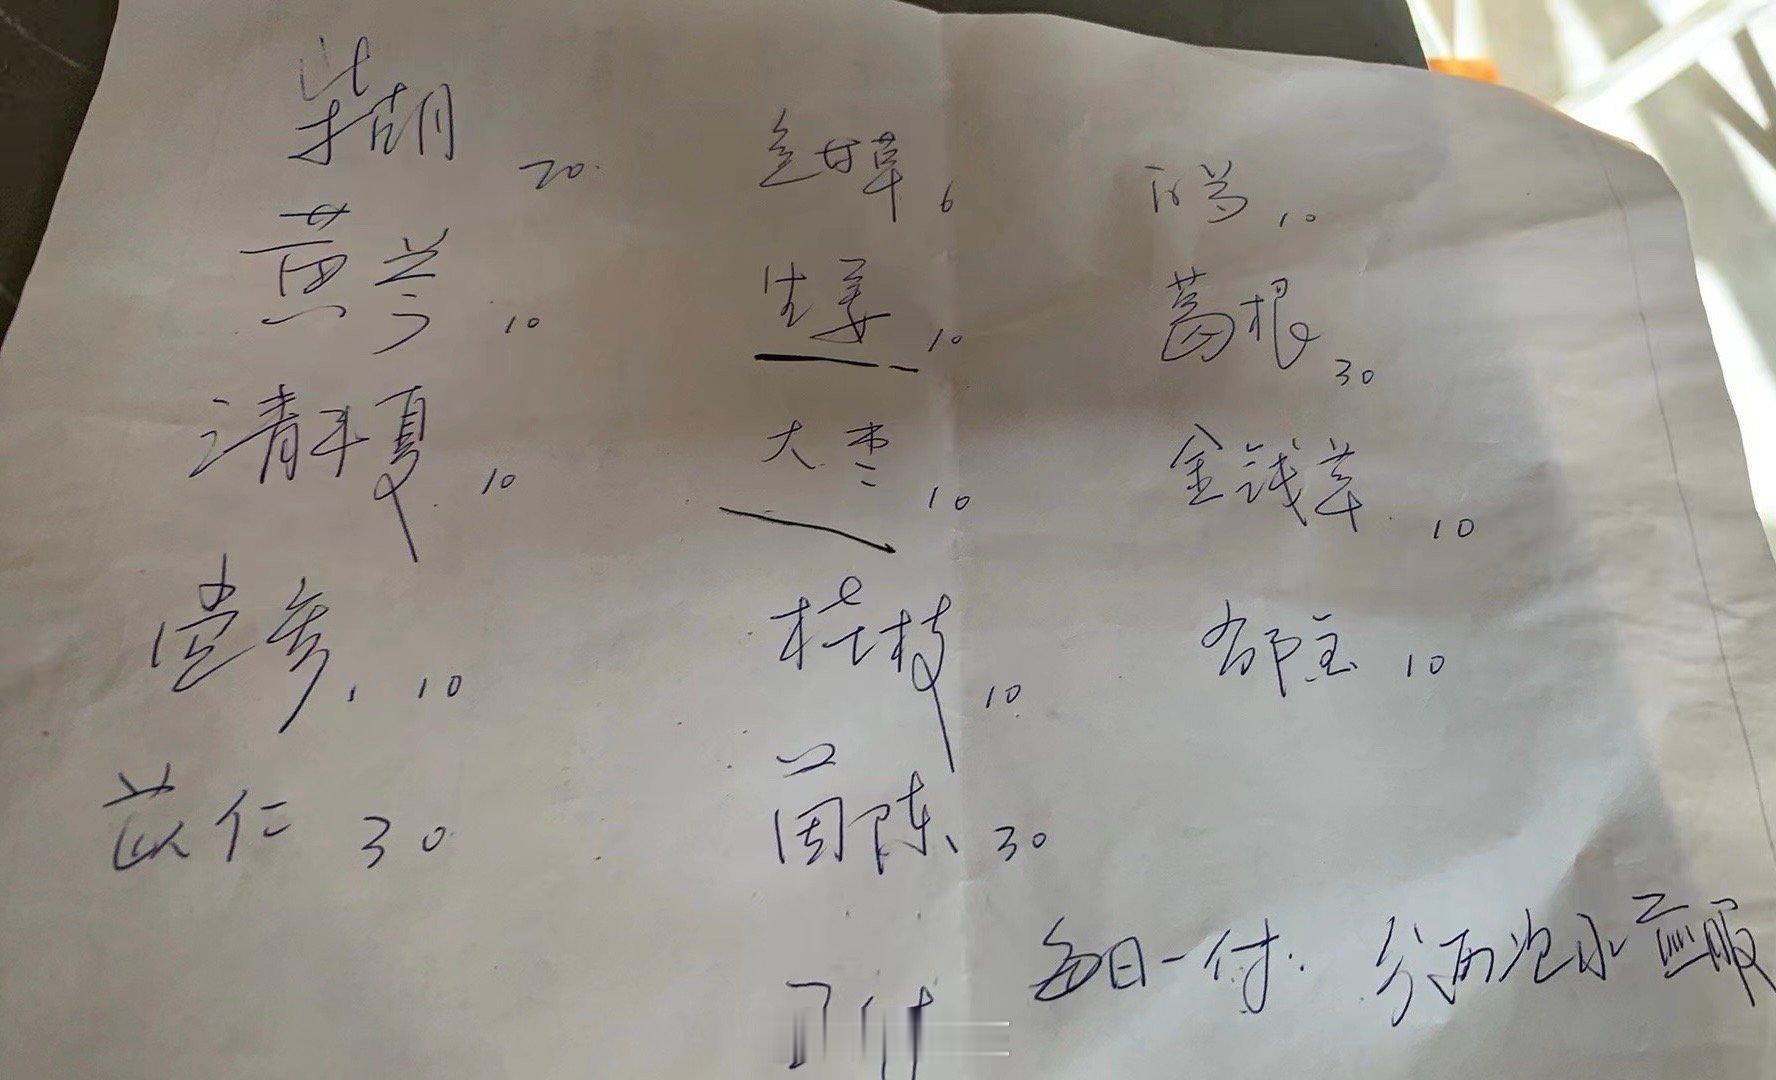 柴胡 20
黄芩 10
清半夏 10
党参 10
苡仁 30
炙甘草 6
生姜 10
大枣 10
桂枝 10
茵陈 30
白芍 10
葛根 30
金钱草 10
郁金 10
7付
每日一付 分两次水煎服